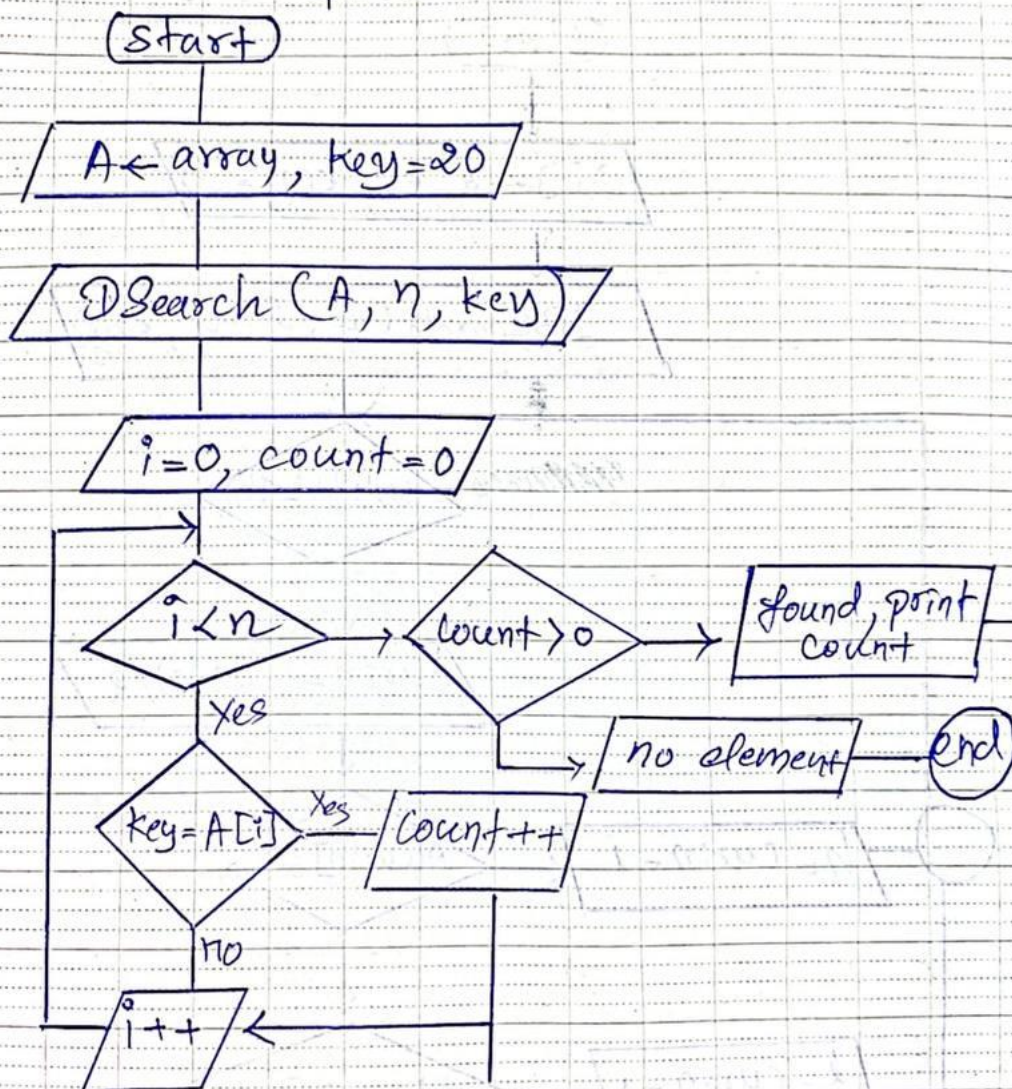 start
A ← array, key=20
DSearch (A, n, key)
i=0, count=0
i<n
count>0
found, print
count
yes
no element
end
key=A[i]
Yes
count++
no
i++